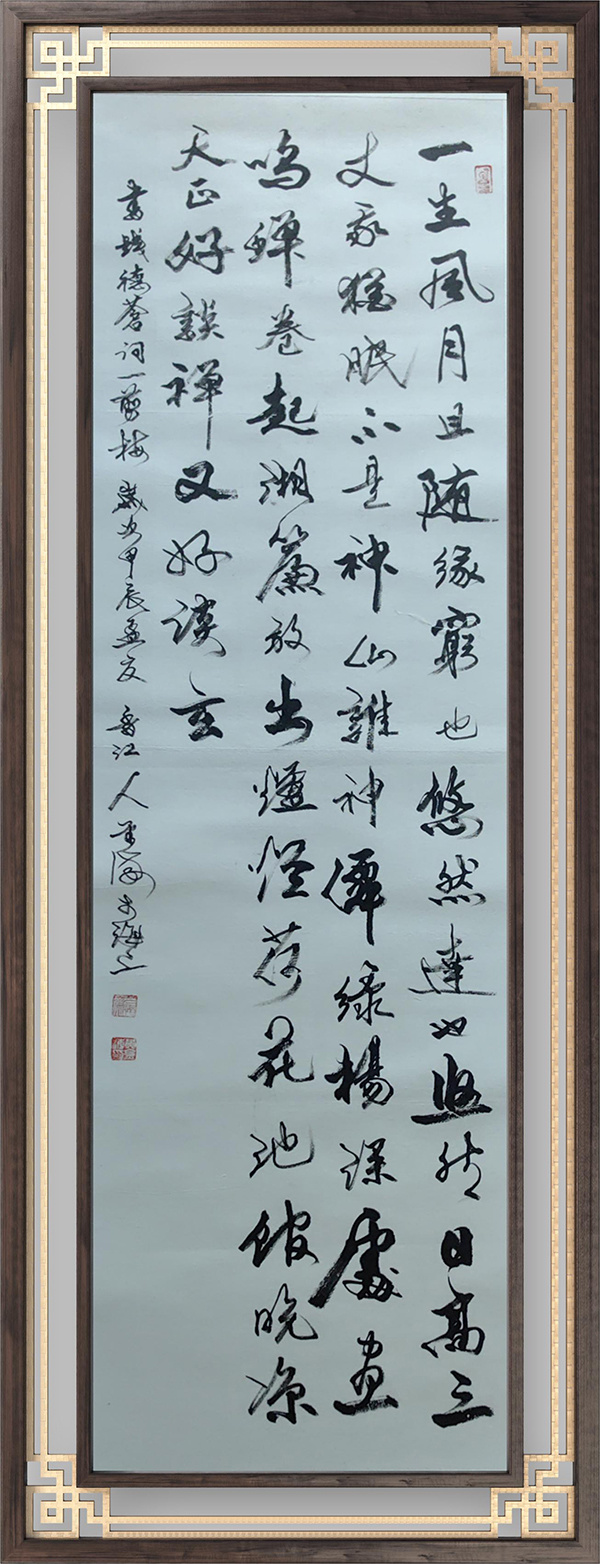 一生風月且随緣窮也悠然達也悠然日高三
丈我猶眠不是神仙誰神僊綠楊深處畫
鳴蟬卷起湘簾放出爐煙荷花池館晚凉
天正好談禪又好談玄
書錢德蒼詞一剪梅 歲次甲辰孟夏 香江人